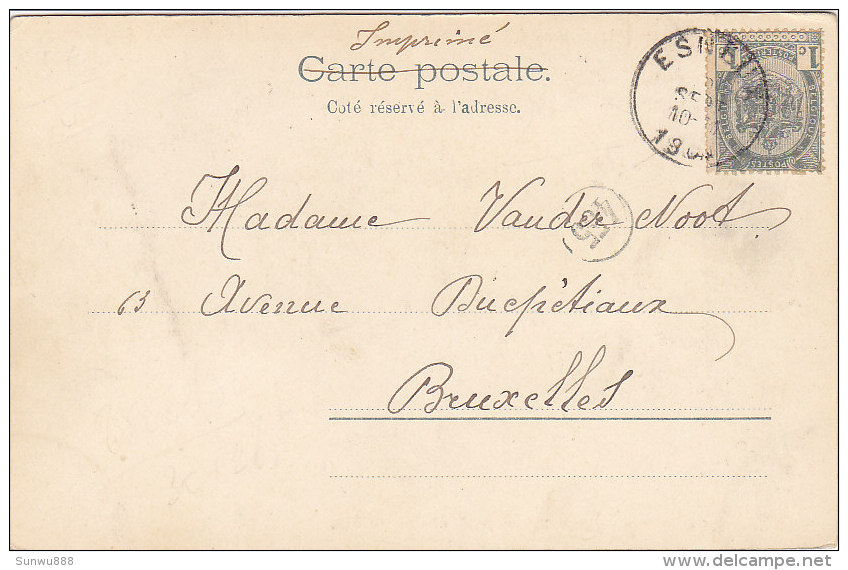 Imprimé
Carte postale.
Coté réservé à l'adresse.
1 c
BELGIQUE
POSTES
10-
Madame Vander Noot.
63 Avenue Ducpétiaux
Bruxelles
Sunwu888
delcampe.net